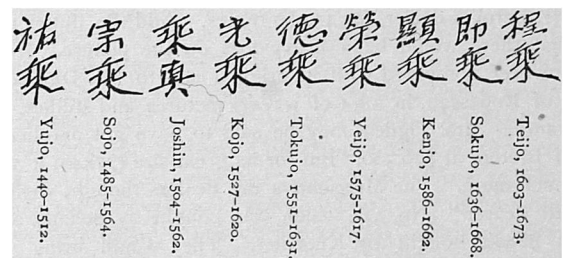 祐乘
Yujo, 1440–1512.
宗乘
Sojo, 1485–1564.
乘真
Joshin, 1504–1562.
光乘
Kojo, 1527–1620.
徳乘
Tokujo, 1551–1631.
榮乘
Yeijo, 1575–1617.
顯乘
Kenjo, 1586–1662.
即乘
Sokujo, 1636–1668.
程乘
Teijo, 1603–1673.